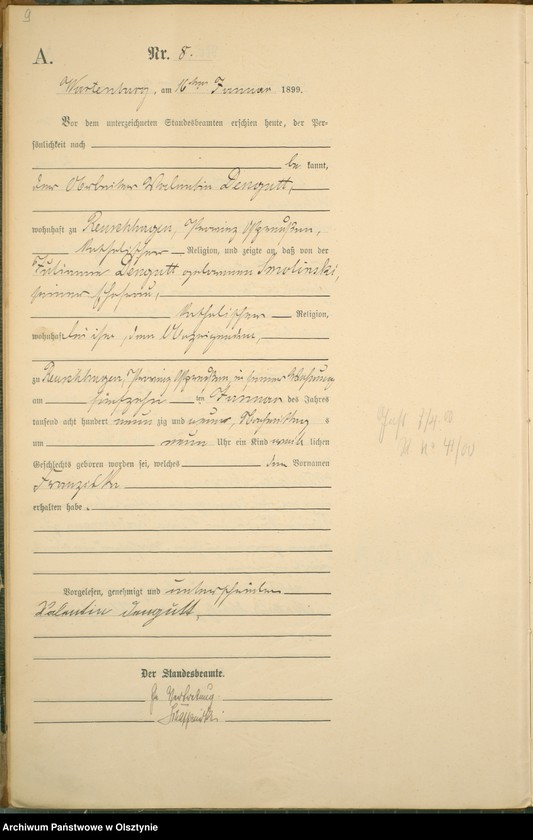 9
A.
Nr. 8.
Wartenburg, am 16ten Januar 1899.
Vor dem unterzeichneten Standesbeamten erschien heute, der Per-
sönlichkeit nach
be kannt,
der Arbeiter Valentin Dengutt,
wohnhaft zu Reuschhagen, Provinz Ostpreußen,
katholischer Religion, und zeigte an, daß von der
Julianne Dengutt geborenen Smolinski,
seiner Ehefrau,
katholischer Religion,
wohnhaft bei ihm, dem Anzeigenden,
zu Reuschhagen, Provinz Ostpreußen, in seiner Wohnung
am fünfzehn ten Januar des Jahres
tausend acht hundert neun zig und neun, Nachmittag s
um neun Uhr ein Kind weib lichen
Geschlechts geboren worden sei, welches den Vornamen
Franziska
erhalten habe.
Vorgelesen, genehmigt und unterschrieben
Valentin Dengutt,
Der Standesbeamte.
In Vertretung
No 41/00
Archiwum Państwowe w Olsztynie